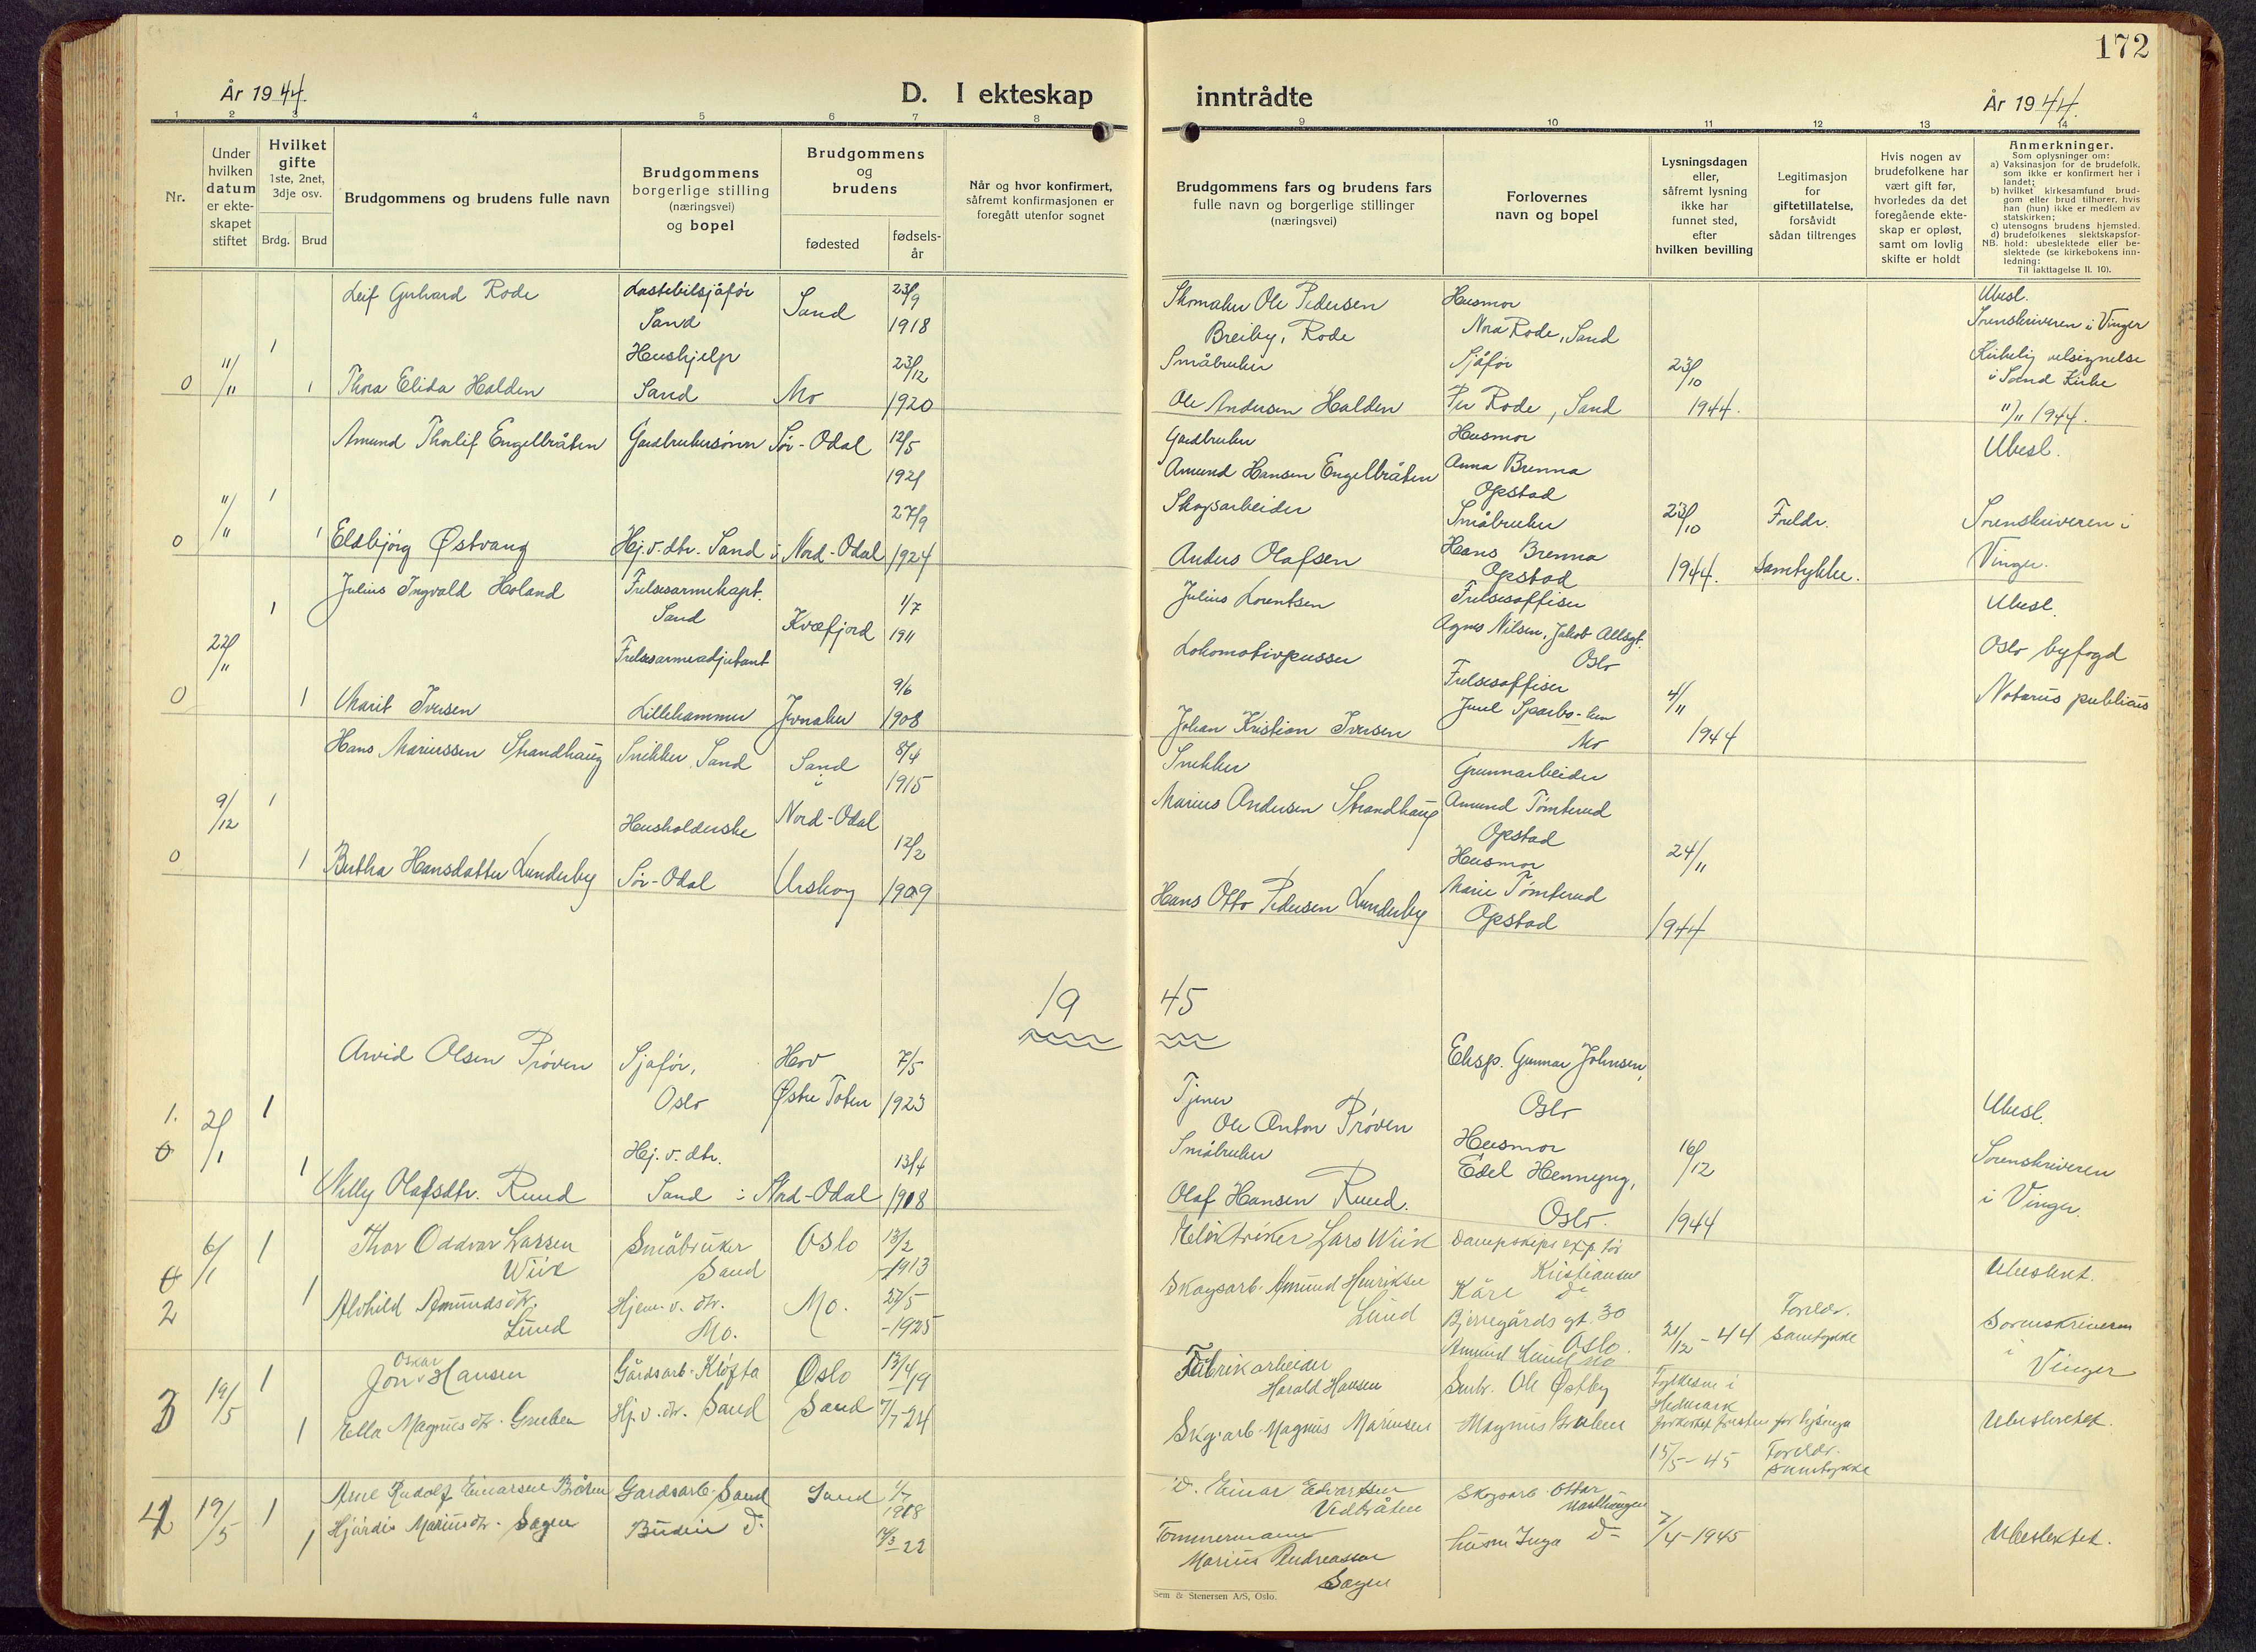 172
År 1944.
D. I ekteskap
inntrådte
År 1944.
1 2 3 4 5 6 7 8 9 10 11 12 13 14
Nr.
Under hvilken datum er ekteskapet stiftet
Hvilket gifte
1ste, 2net, 3dje osv.
Brdg. Brud
Brudgommens og brudens fulle navn
Brudgommens borgerlige stilling (næringsvei) og bopel
Brudgommens og brudens
fødested
fødsels-år
Når og hvor konfirmert, såfremt konfirmasjonen er foregått utenfor sognet
Brudgommens fars og brudens fars fulle navn og borgerlige stillinger (næringsvei)
Forlovernes navn og bopel
Lysningsdagen eller, såfremt lysning ikke har funnet sted, efter hvilken bevilling
Legitimasjon for giftetillatelse, forsåvidt sådan tiltrenges
Hvis nogen av brudefolkene har vært gift før, hvorledes da det foregående ekteskap er opløst, samt om lovlig skifte er holdt
Anmerkninger.
Som oplysninger om:
a) Vaksinasjon for de brudefolk, som ikke er konfirmert her i landet;
b) hvilket kirkesamfund brudgom eller brud tilhører, hvis han (hun) ikke er medlem av statskirken;
c) utensogns brudens hjemsted.
d) brudefolkenes slektskapsforhold: ubeslektede eller beslektede (se kirkebokens innledning:
NB.
Til iakttagelse II. 10).
Leif Gerhard Rode
Lastebilsjåfør
Sand
Sand
23/9
1918
Skomaker Ole Pedersen
Breiby, Rode
Husmor
Nora Rode, Sand
Ubesl.
Sorenskriveren i Vinger
0 11/11 1 1
Thora Elida Halden
Hushjelp
Sand
Mo
23/12
1920
Småbruker
Ole Andersen Halden
Sjåfør
Per Rode, Sand
23/10
1944.
Kirkelig velsignelse
i Sand Kirke
11/11 1944.
Amund Thorlif Engelbråten
Gardbrukersønn
Sør-Odal
12/5
1921
Gardbruker
Amund Hansen Engelbråten
Husmor
Anna Brenna
Opstad
Ubesl.
0 11/11 1 1
Eldbjørg Østvang
Hj.v. dtr. Sand i
Nord-Odal
27/9
1924
Skogsarbeider
Anders Olafsen
Småbruker
Hans Brenna
Opstad
23/10
1944.
Foreldr.
Samtykke.
Sorenskriveren i
Vinger.
Julius Ingvald Holand
Frelsesarmekapt.
Sand
Kvæfjord
1/7
1911
Julius Lorentsen
Frelsesoffiser
Agnes Nilsen, Jakob Allsgt.
Oslo
Ubesl.
Oslo byfogd
0 22/11 1 1
Marit Iversen
Frelsesarmeadjutant
Lillehammer
Jevnaker
9/6
1908
Lokomotivpusser
Johan Kristian Iversen
Frelsesoffiser
Mo
4/11
1944
Notarius publicus
Hans Mariussen Strandhaug
Snikker, Sand
Sand
i
Nord-Odal
8/4
1915
Snekker
Marius Andersen Strandhaug
Grunnarbeider
Amund Tømterud
Opstad
0 9/12 1 1
Bertha Hansdatter Lunderby
Husholderske
Sør-Odal
Urskog
12/2
1909
Hans Otto Pedersen Lunderby
Husmor
Marie Tømterud
Opstad
24/11
1944
19 45
Arvid Olsen Prøven
Sjåfør,
Oslo
Hov
Østre Toten
7/5
1923
Tjener
Ole Anton Prøven
Eksp. Gunnar Johnsen,
Oslo
Ubesl.
1. 0 2/1 1 1
Nelly Olafsdtr. Ruud
Hj. v. dtr.
Sand i Nord-Odal
13/4
1918
Småbruker
Olaf Hansen Ruud.
Husmor
Edel Hennyng,
Oslo.
16/12
1944
Sorenskriveren
i Vinger.
0 2 6/1 1 1
Thor Oddvar Larsen
Wiik
Småbruker
Sand
Oslo
13/2
-1913
Lars Wiik
Dampskips exp.
Kristiansen
Ubeslekt.
Alvhild Amundsdtr.
Lund
Hjem. v. dtr.
Mo.
Mo.
27/5
-1925
Skogsarb. Amund Henriksen
Lund
Kåre do
Bjerregårds gt. 30
Oslo.
Amund Lund Mo
21/12 - 44
Foreldr.
Samtykke
Sorenskriveren
i Vinger
3 19/5 1 1
Jon Oskar Hansen
Gårdsarb. Kløfta
Oslo
13/4 19
Fabrikarbeider
Harald Hansen
Smbr. Ole Østby
Fylkesm i
Hedmark
Ella Magnusdtr. Gruben
Hj.v.dtr. Sand
Sand
7/7-24
Skg.arb. Magnus Mariusen
Magnus Gruben
15/5-45
Foreldr.
samtykke
Ubeslektet.
4 19/5 1 1
Arne Rudolf Einarsen Bråten
Gardsarb. Sand
Sand
1/7
1918
Einar Edvartsen
Vedbråten
Skogsarb. Ottar
Hjørdis Mariusdtr. Sagen
Budeie do
22
Tømmermann
Marius Andreassen
Sagen
husm Inga do
7/4-1945
Ubeslektet.
Sem & Stenersen A/S, Oslo.